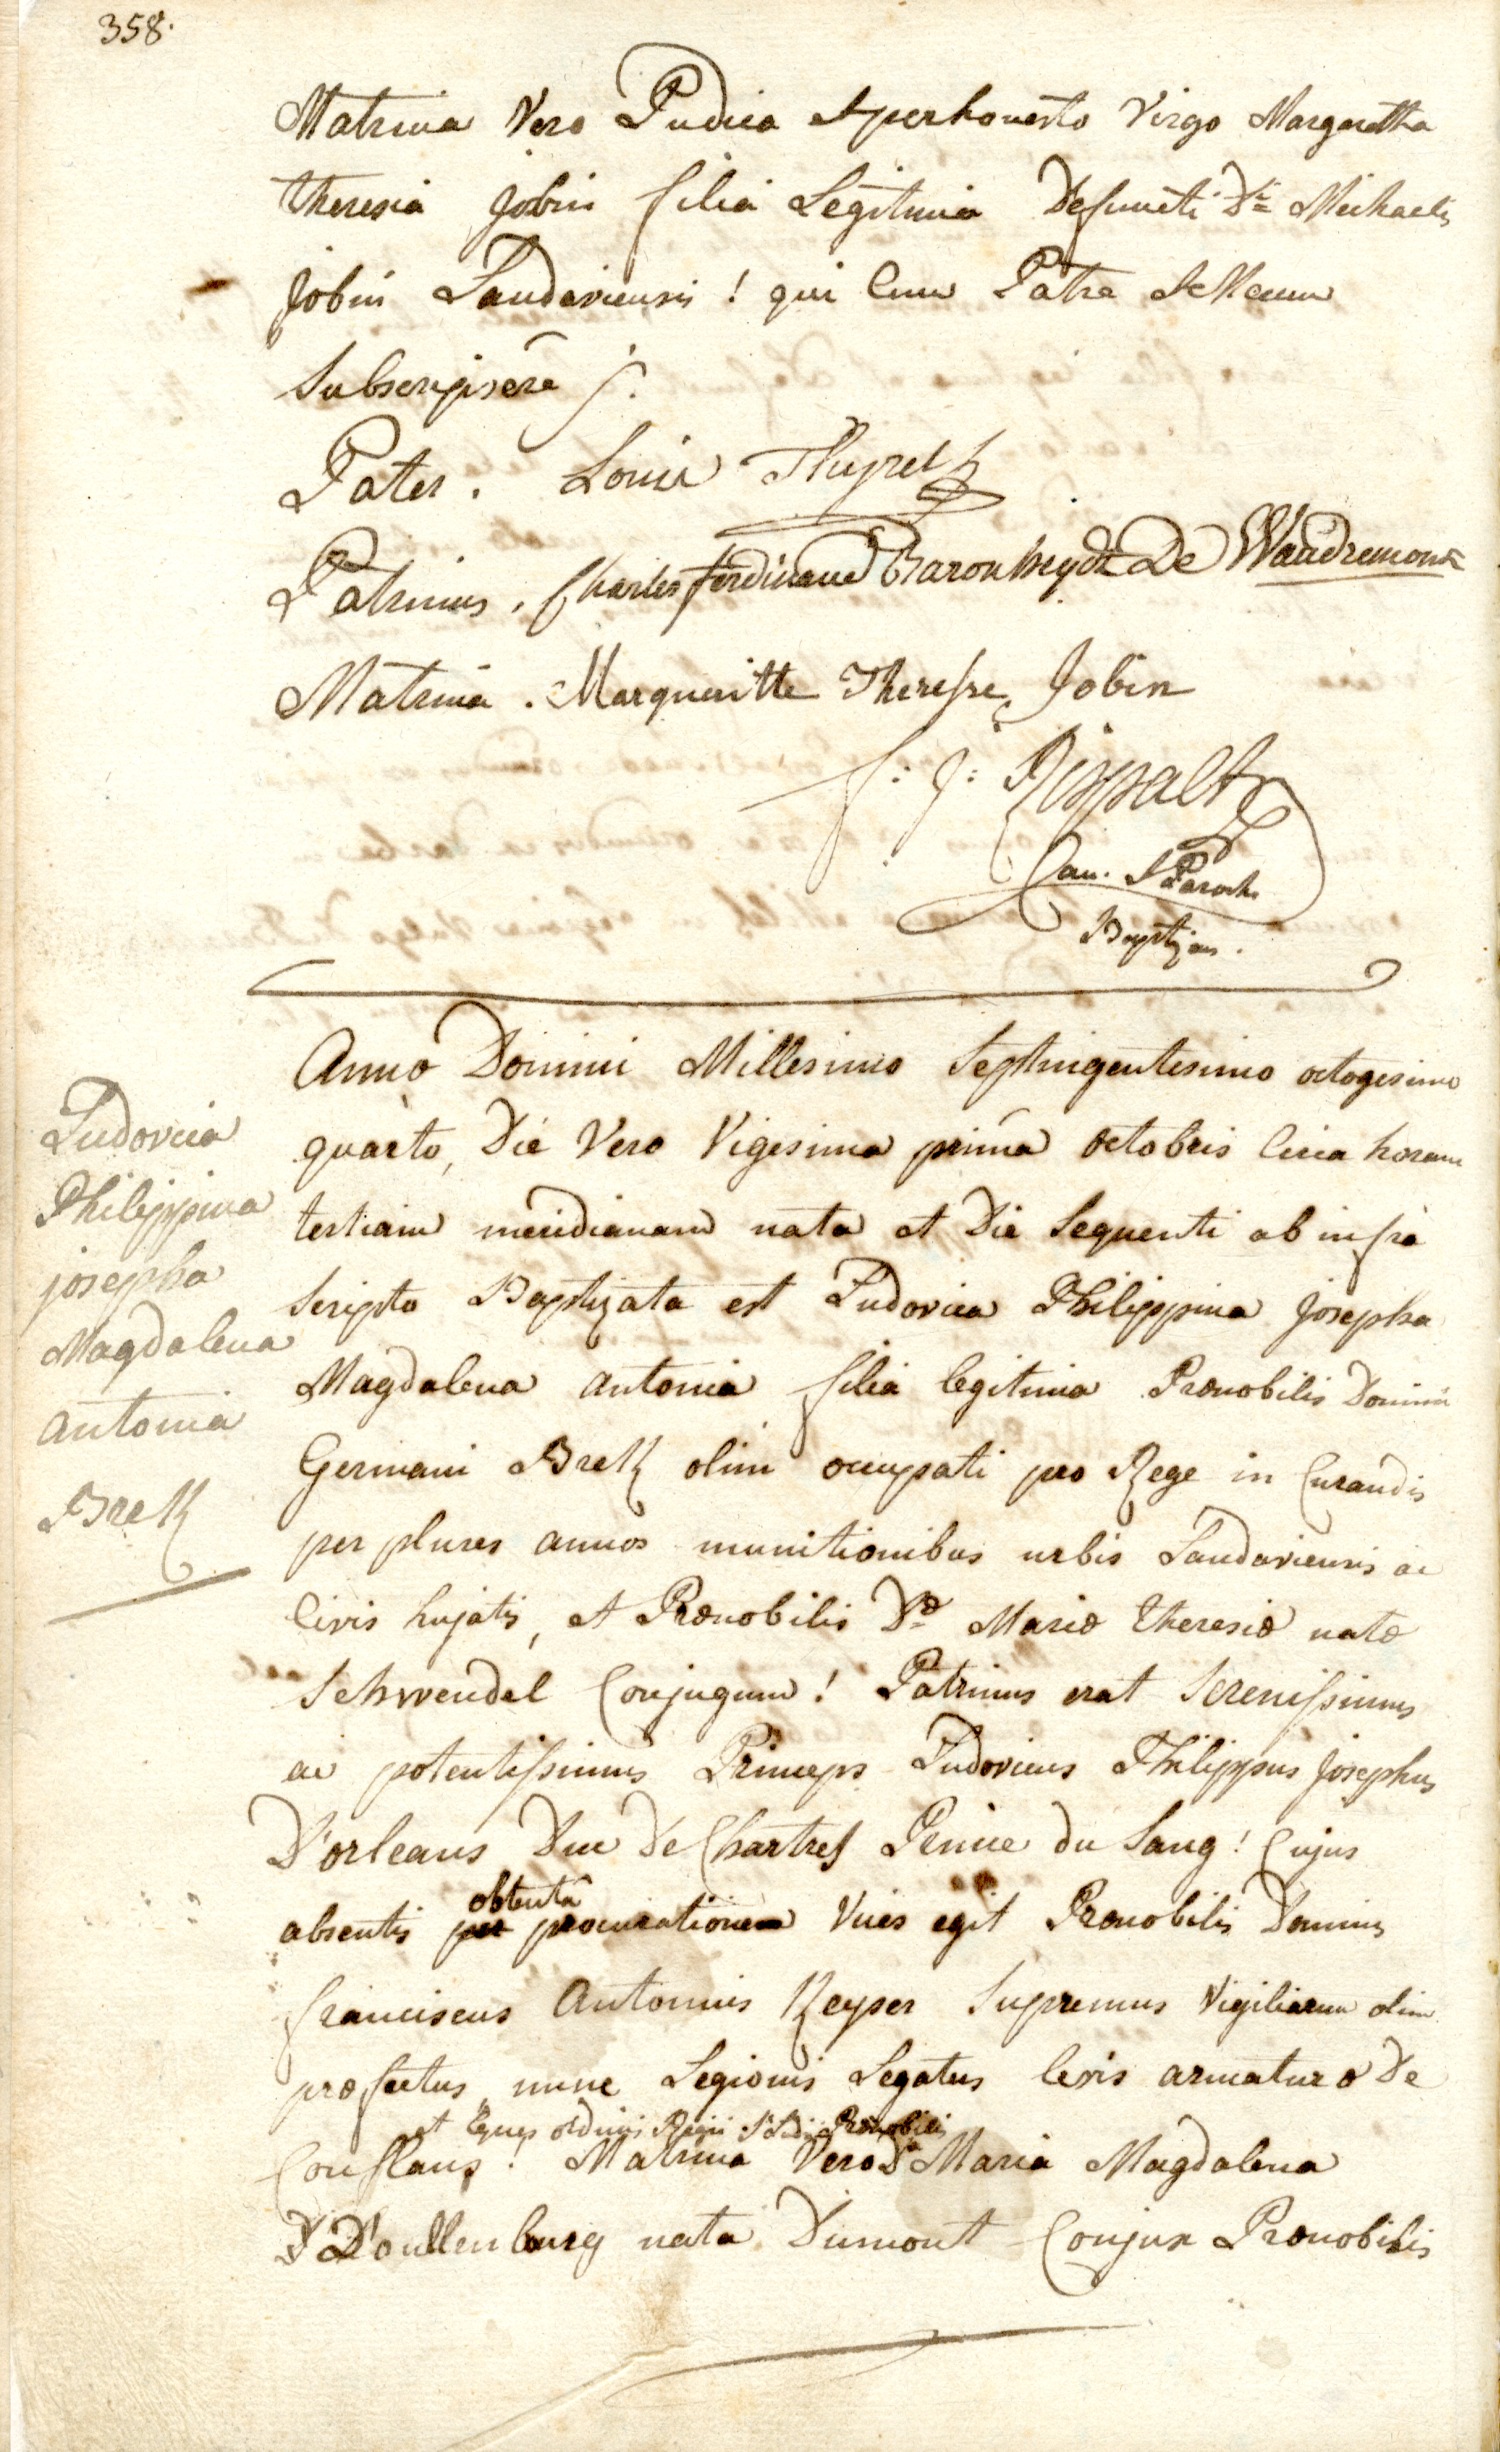 358.
Matrina Vero Pudica Ac perhonesta Virgo Margaretha
theresia jobin filia Legitima Defuncti Di Michaelis
jobin Landaviensis ! qui Cum Patre Ac Mecum
Subscripsere
Pater. Louis Thyret
Patrinus. Charles ferdinand Baron heydt De Waudremont
Matrina. Margueritte Theresse Jobin
f: j: Rispalt
Can. & Paroch.
Baptizans.
Anno Domini Millesimo Septingentesimo octogesimo
quarto, Die Vero Vigesima prima octobris Circa horam
tertiam meridianam nata et Die Sequenti ab infra
Scripto Baptizata est Ludovica Philippina josepha
Magdalena antonia filia legitima Prænobilis Domini
Germani Bretz olim occupati pro Rege in Curandis
per plures annos munitionibus urbis Landaviensis ac
Civis hujatis, et Prænobilis Dæ Mariæ theresiæ natæ
Schwendel Conjugum ! Patrinus erat Serenissimus
ac potentissimus Princeps Ludovicus Philippus josephus
D'orleans Duc De Chartres Prince du Sang ! Cujus
absentis per obtentâ procuratione Vices egit Prænobilis Dominus
franciscus Antonius Keyser Supremus Vigiliarum olim
præfectus nunc Legionis Legatus levis armaturæ De
et Eques ordinis Regii Sti Ludovici Prænobilis
Conflans ! Matrina Vero Da Maria Magdalena
D'oullenbourg nata Dumont Conjux Prænobilis
Ludovica
Philippina
josepha
Magdalena
antonia
Bretz